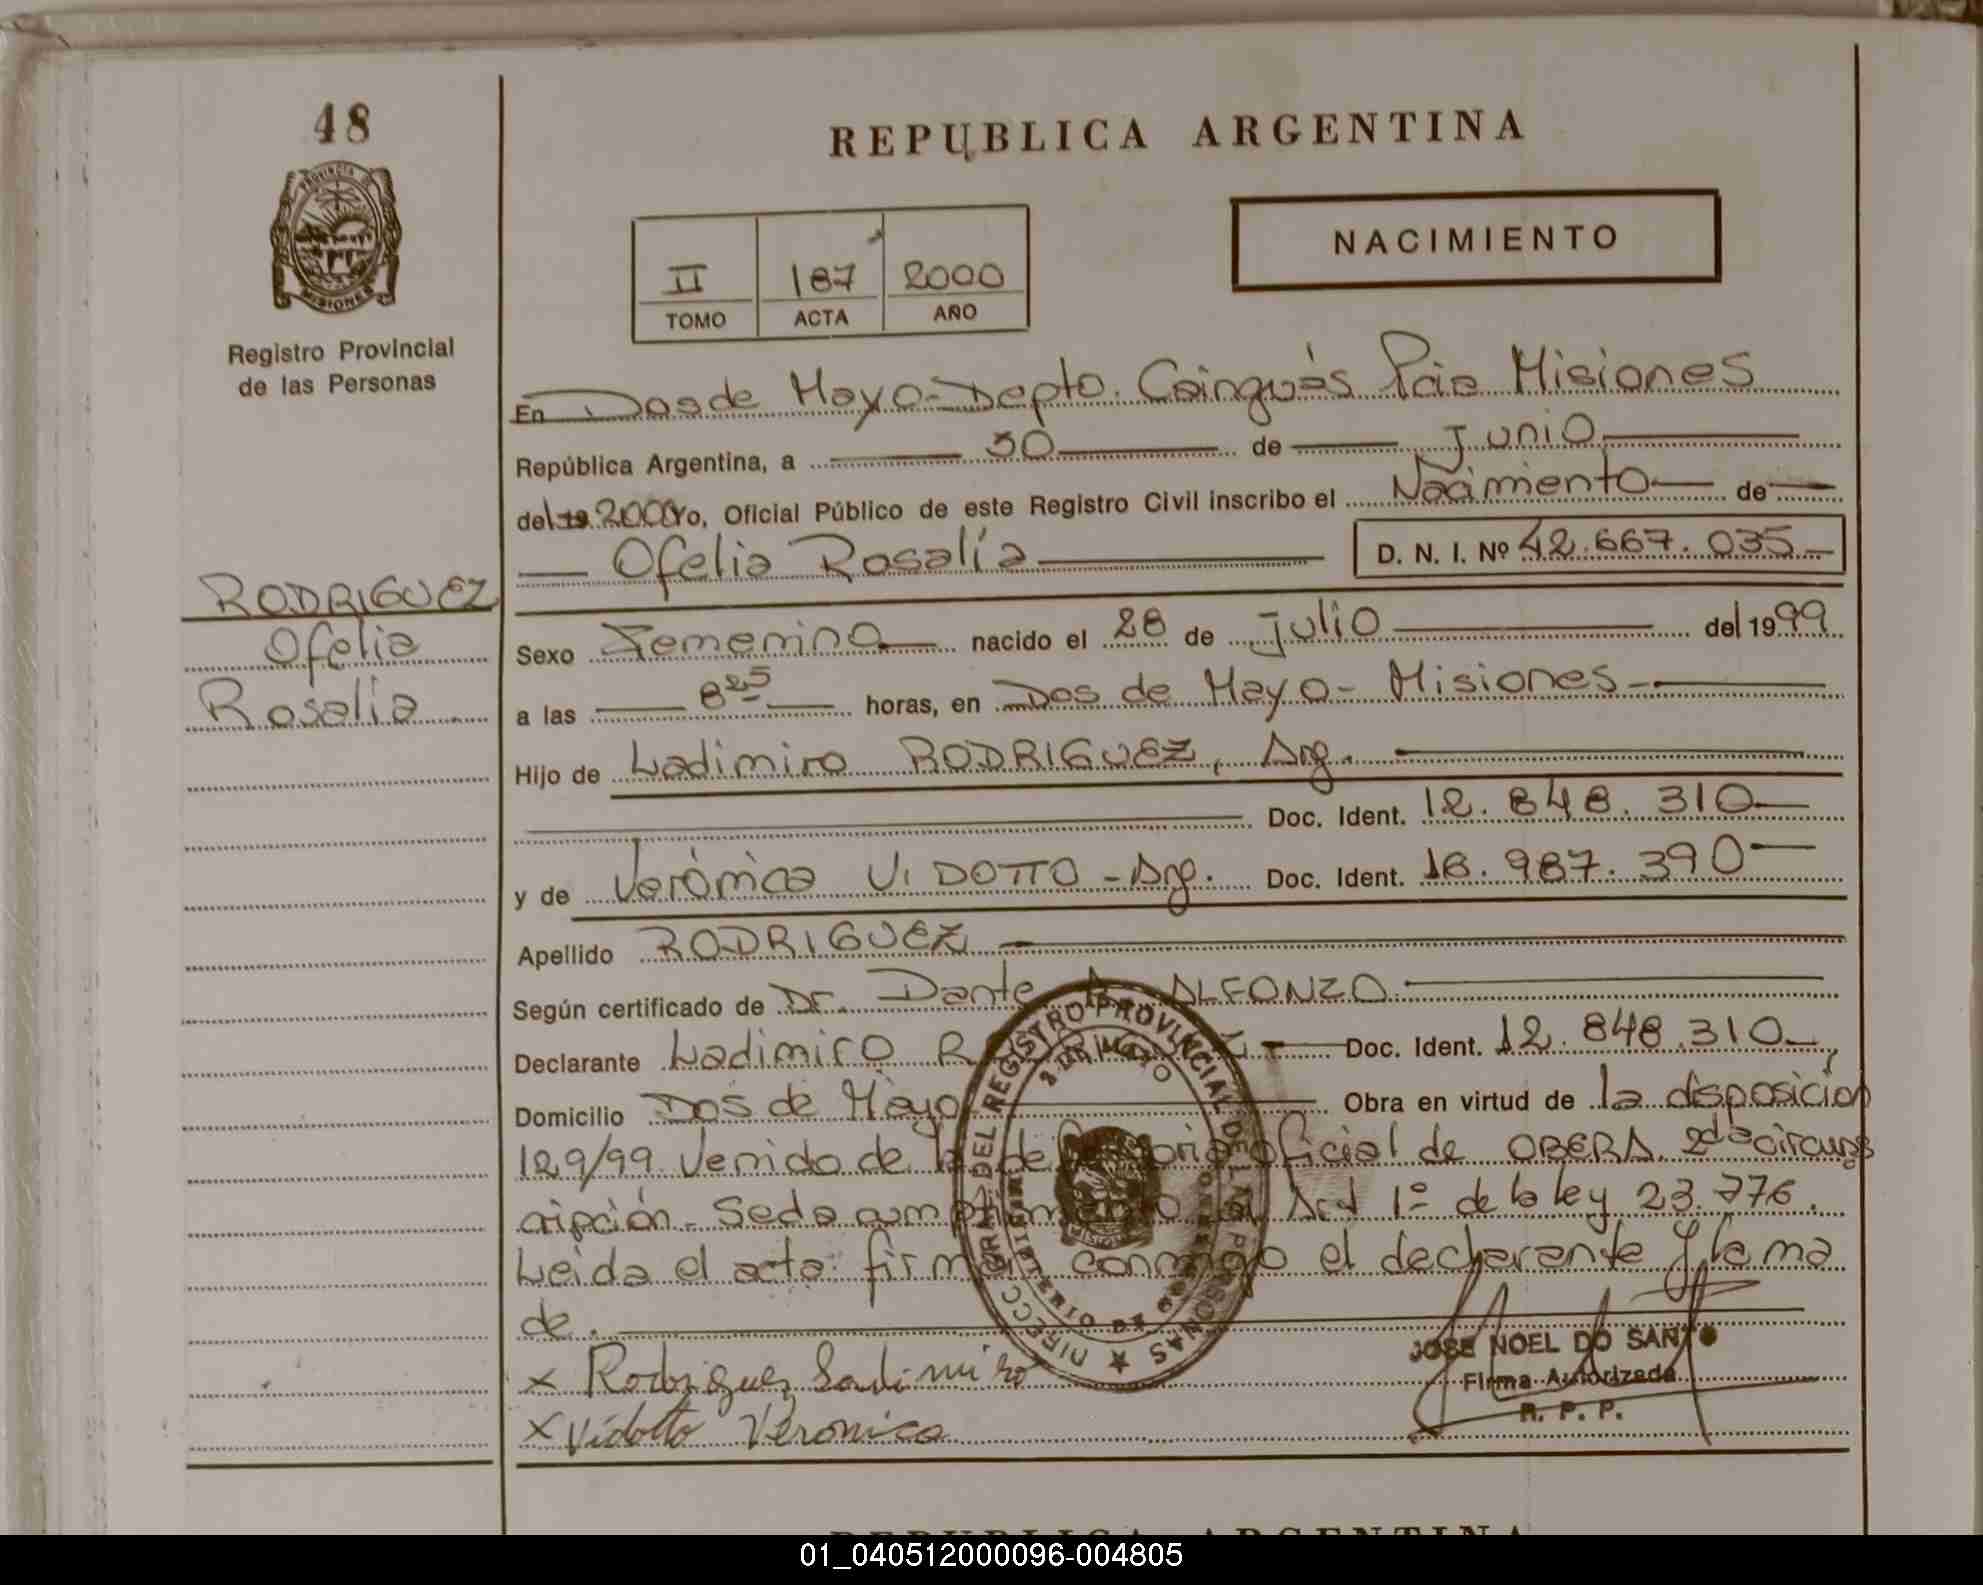 48
REPUBLICA ARGENTINA
PROVINCIA DE MISIONES
Registro Provincial
de las Personas
II 187 2000
TOMO ACTA AÑO
NACIMIENTO
En Dos de Mayo - Depto. Cainguás Pcia Misiones
República Argentina, a 30 de Junio
del 19 2000 Yo, Oficial Público de este Registro Civil inscribo el Nacimiento de
Ofelia Rosalía D. N. I. Nº 42.667.035
RODRIGUEZ
Ofelia
Rosalía
Sexo Femenino nacido el 28 de Julio del 1999
a las 8 25 horas, en Dos de Mayo - Misiones
Hijo de Ladimiro RODRIGUEZ, Arg.
Doc. Ident. 12.848.310
y de Verónica VIDOTTO - Arg. Doc. Ident. 18.987.390
Apellido RODRIGUEZ
Según certificado de Dr. Dante A. ALFONZO
Declarante Ladimiro RODRIGUEZ Doc. Ident. 12.848.310
Domicilio Dos de Mayo Obra en virtud de la disposición
129/99 Venido de la defensoria oficial de OBERA 2da circuns
cripción - Se da cumplimiento al Art 1º de la ley 23.776.
Leida el acta firman conmigo el declarante y la ma
de.
x Rodriguez Ladimiro
x Vidotto Veronica
JOSE NOEL DO SANTO
Firma Autorizada
R. P. P.
DIRECC. GRAL. DEL REGISTRO PROVINCIAL DE LAS PERSONAS
REPUBLICA ARGENTINA
01_040512000096-004805